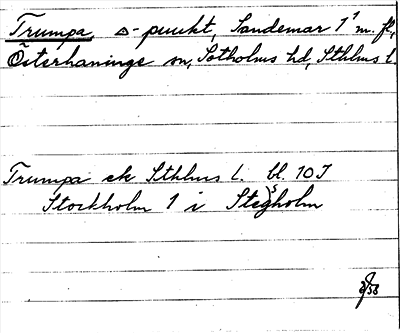 Trumpa △-punkt, Sandemar 1¹ m. fl.,
Österhaninge sn, Sotholms hd, Sthlms l.
Trumpa ek Sthlms l. bl. 10 J
Stockholm 1 i Stegsholm